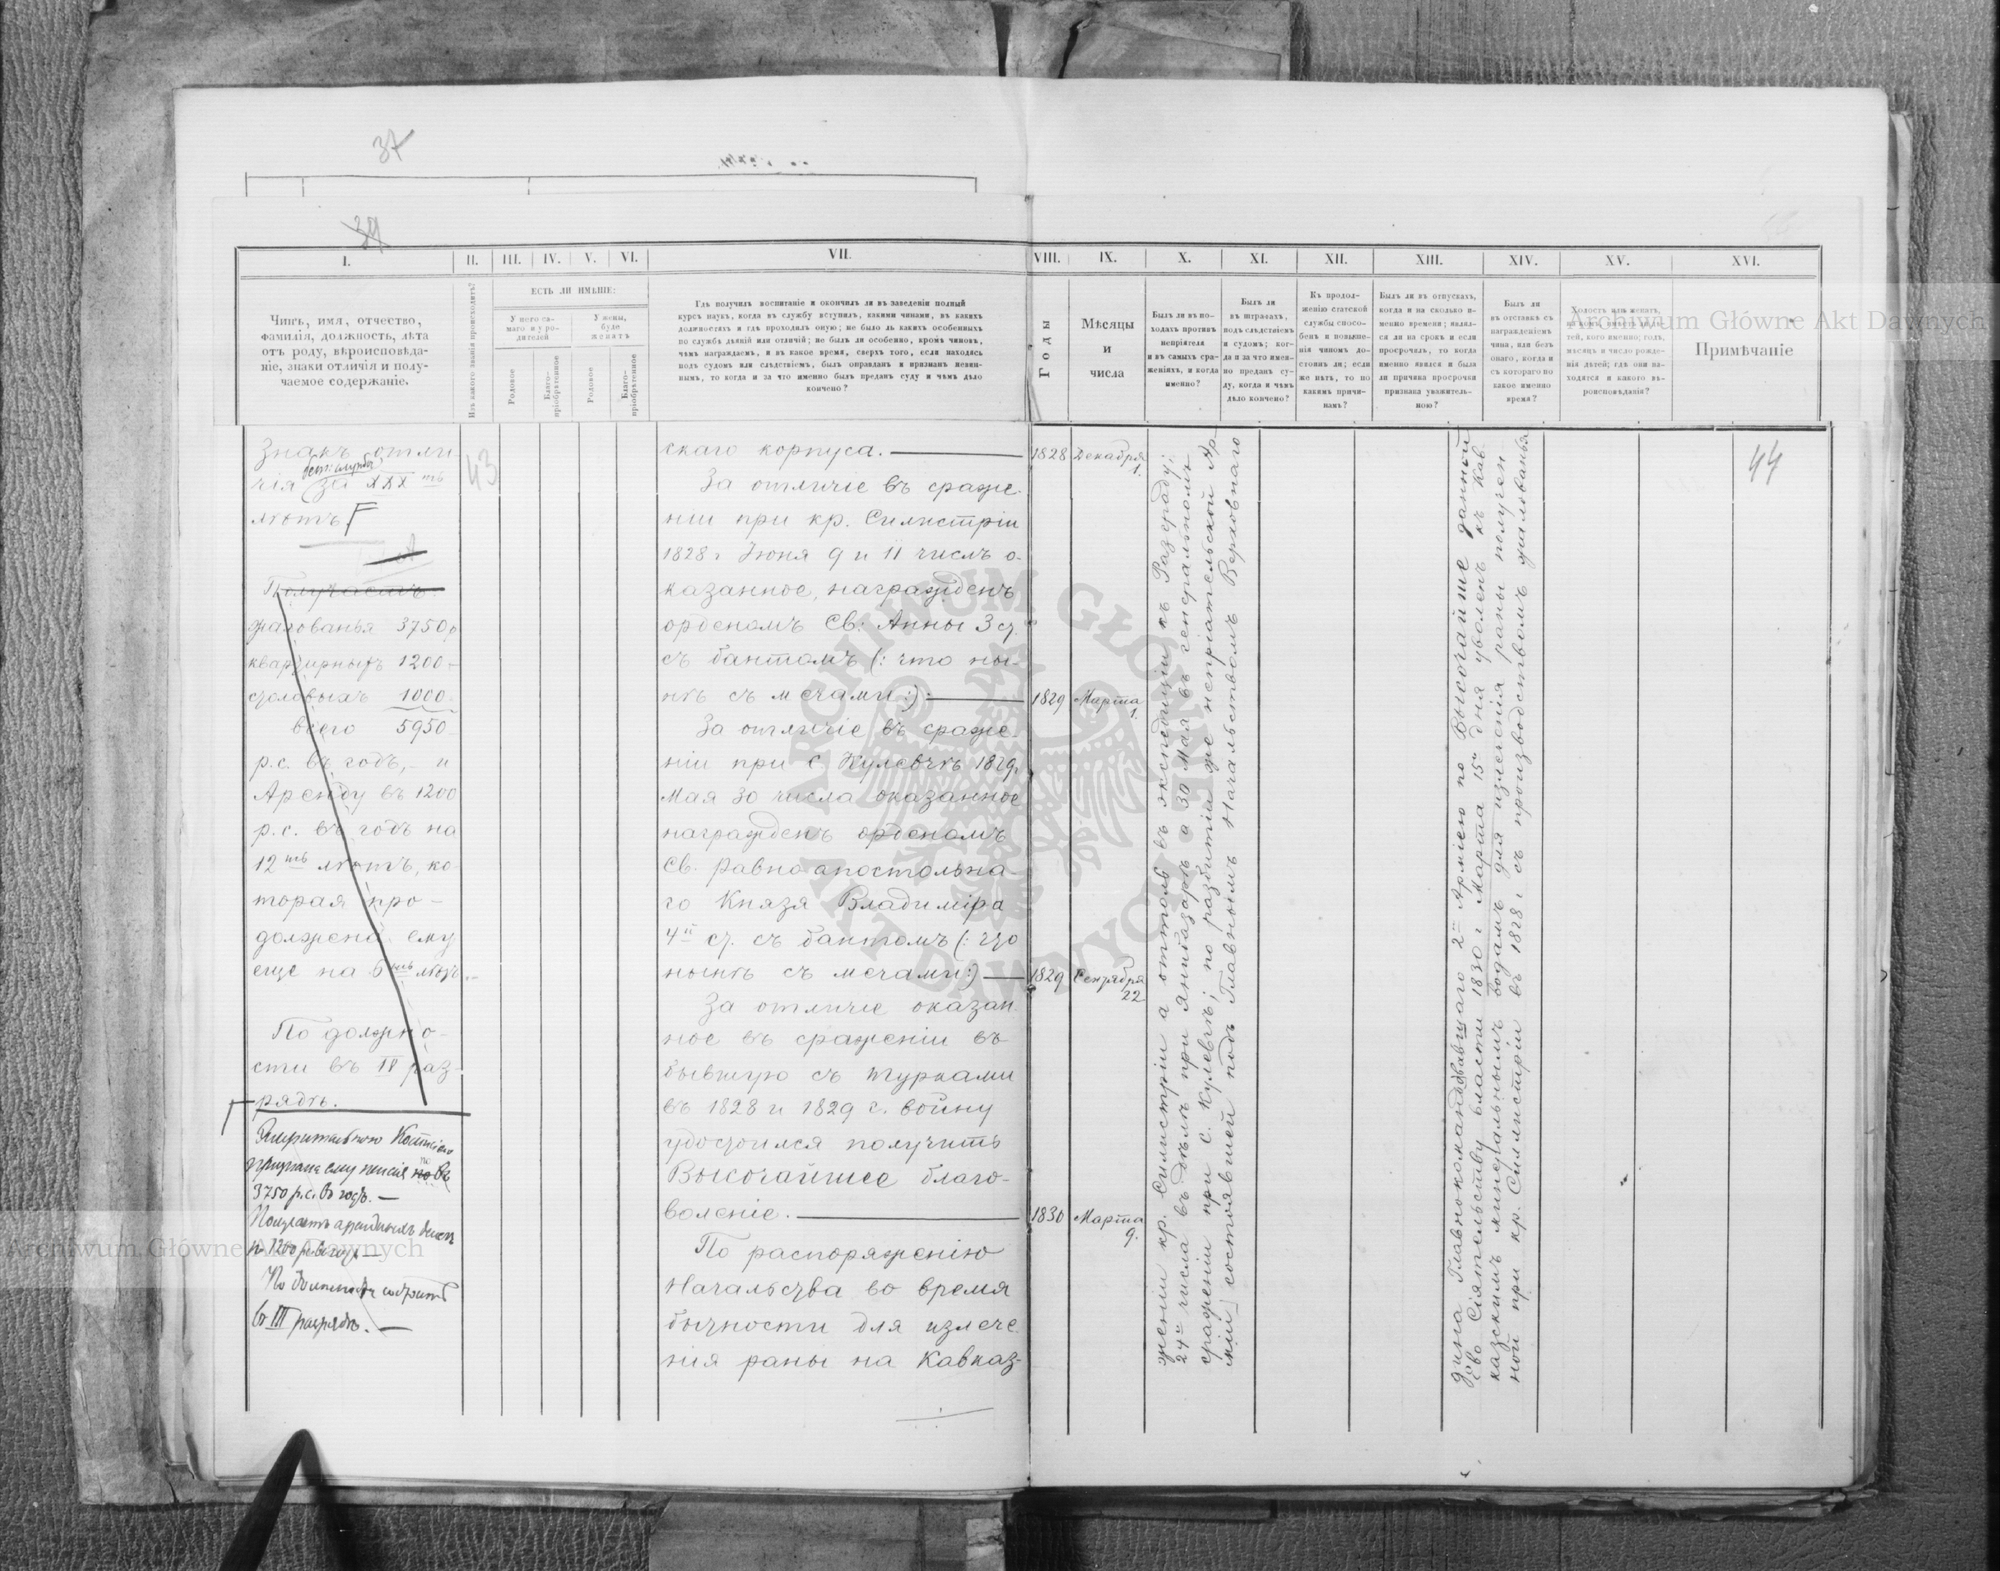 37
37
I.
II.
III.
IV.
V.
VI.
VII.
VIII.
IX.
X.
XI.
XII.
XIII.
XIV.
XV.
XVI.
Чинъ, имя, отчество,
фамилія, должность, лѣта
отъ роду, вѣроисповѣда-
ніе, знаки отличія и полу-
чаемое содержаніе.
Изъ какого званія происходитъ?
ЕСТЬ ЛИ ИМѢНІЕ:
У него са-
маго и у ро-
дителей
У жены,
буде
женатъ
Родовое
Благо-
пріобрѣтенное
Родовое
Благо-
пріобрѣтенное
Гдѣ получилъ воспитаніе и окончилъ ли въ заведеніи полный
курсъ наукъ, когда въ службу вступилъ, какими чинами, въ какихъ
должностяхъ и гдѣ проходилъ оную; не было ль какихъ особенныхъ
по службѣ дѣяній или отличій; не былъ ли особенно, кромѣ чиновъ,
чѣмъ награждаемъ, и въ какое время, сверхъ того, если находясь
подъ судомъ или слѣдствіемъ, былъ оправданъ и признанъ невин-
нымъ, то когда и за что именно былъ преданъ суду и чѣмъ дѣло
кончено?
Годы
Мѣсяцы
и
числа
Былъ ли въ по-
ходахъ противъ
непріятеля
и въ самыхъ сра-
женіяхъ, и когда
именно?
Былъ ли
въ штрафахъ,
подъ слѣдствіемъ
и судомъ; ког-
да и за что имен-
но преданъ су-
ду, когда и чѣмъ
дѣло кончено?
Къ продол-
женію статской
службы спосо-
бенъ и повыше-
нія чиномъ до-
стоинъ ли; если
же нѣтъ, то по
какимъ причи-
намъ?
Былъ ли въ отпускахъ,
когда и на сколько и-
менно времени; являл-
ся ли на срокъ и если
просрочилъ, то когда
именно явился и была
ли причина просрочки
признана уважитель-
ною?
Былъ ли
въ отставкѣ съ
награжденіемъ
чина, или безъ
онаго, когда и
съ котораго по
какое именно
время?
Холостъ или женатъ,
на комъ, имѣетъ ли дѣ-
тей, кого именно; годъ,
мѣсяцъ и число рожде-
нія дѣтей; гдѣ они на-
ходятся и какого вѣ-
роисповѣданія?
Примѣчаніе
Archiwum Główne Akt Dawnych
Знакъ отли-
чія за XXX тъ
лѣтъ
43
Получаетъ:
жалованья 3750 р
квартирныхъ 1200 -
столовыхъ 1000 -
всего 5950
р.с. въ годъ, - и
Аренду въ 1200
р.с. въ годъ на
12 ть лѣтъ, ко-
торая про-
должена ему
еще на 6 ть лѣтъ.-
По должно-
сти въ IV раз-
рядѣ.
3750 р.с. въ годъ. —
въ III разрядѣ. —
скаго корпуса. —
За отличіе въ сраже-
ніи при кр. Силистріи
1828 г Іюня 9 и 11 числъ о-
казанное, награжденъ
орденомъ Св: Анны 3 ст.
съ бантомъ (: что ны-
нѣ съ мечами :) —
За отличіе въ сраже-
ніи при с. Кулевчѣ 1829 г
Мая 30 числа оказанное
награжденъ орденомъ
Св. Равноапостольна-
го Князя Владиміра
4 й ст. съ бантомъ (: что
нынѣ съ мечами :) —
За отличіе оказан-
ное въ сраженіи въ
бывшую съ турками
въ 1828 и 1829 г. войну
удостоился получить
Высочайшее благо-
воленіе. —
По распоряженію
Начальства во время
бытности для излече-
нія раны на Кавказ-
1828 Декабря
1.
1829 Марта
1.
1829 Сентября
22
1830 Марта
9.
женіи кр. Силистріи а оттоль въ экспедиціи къ Разграду;
24 го числа въ дѣлѣ при Янибазарѣ а 30 Мая въ генеральномъ
сраженіи при с. Кулевчѣ; по разбитіи же непріятельской Ар-
міи состоявшей подъ Главнымъ Начальствомъ Верховнаго
дина Главнокомандовавшаго 2 ю Арміею по Высочайше данной
Его Сіятельству власти 1830 г. Марта 15 дня уволенъ къ Кав-
казскимъ минеральнымъ водамъ для излеченія раны получен-
ной при кр. Силистріи въ 1828 г. съ производствомъ жалованья
44
ARCHIWUM GŁÓWNE AKT DAWNYCH
Archiwum Główne Akt Dawnych